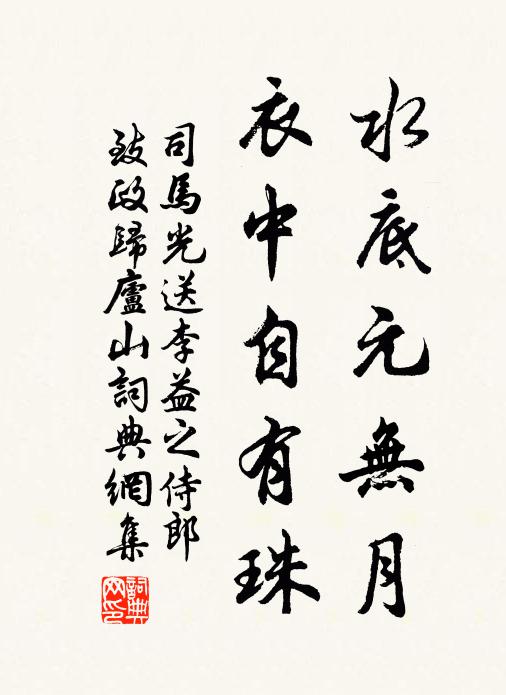 水底元無月
衣中自有珠
司馬光送李益之侍郎
致政歸廬山詞典網集
詞典
网印